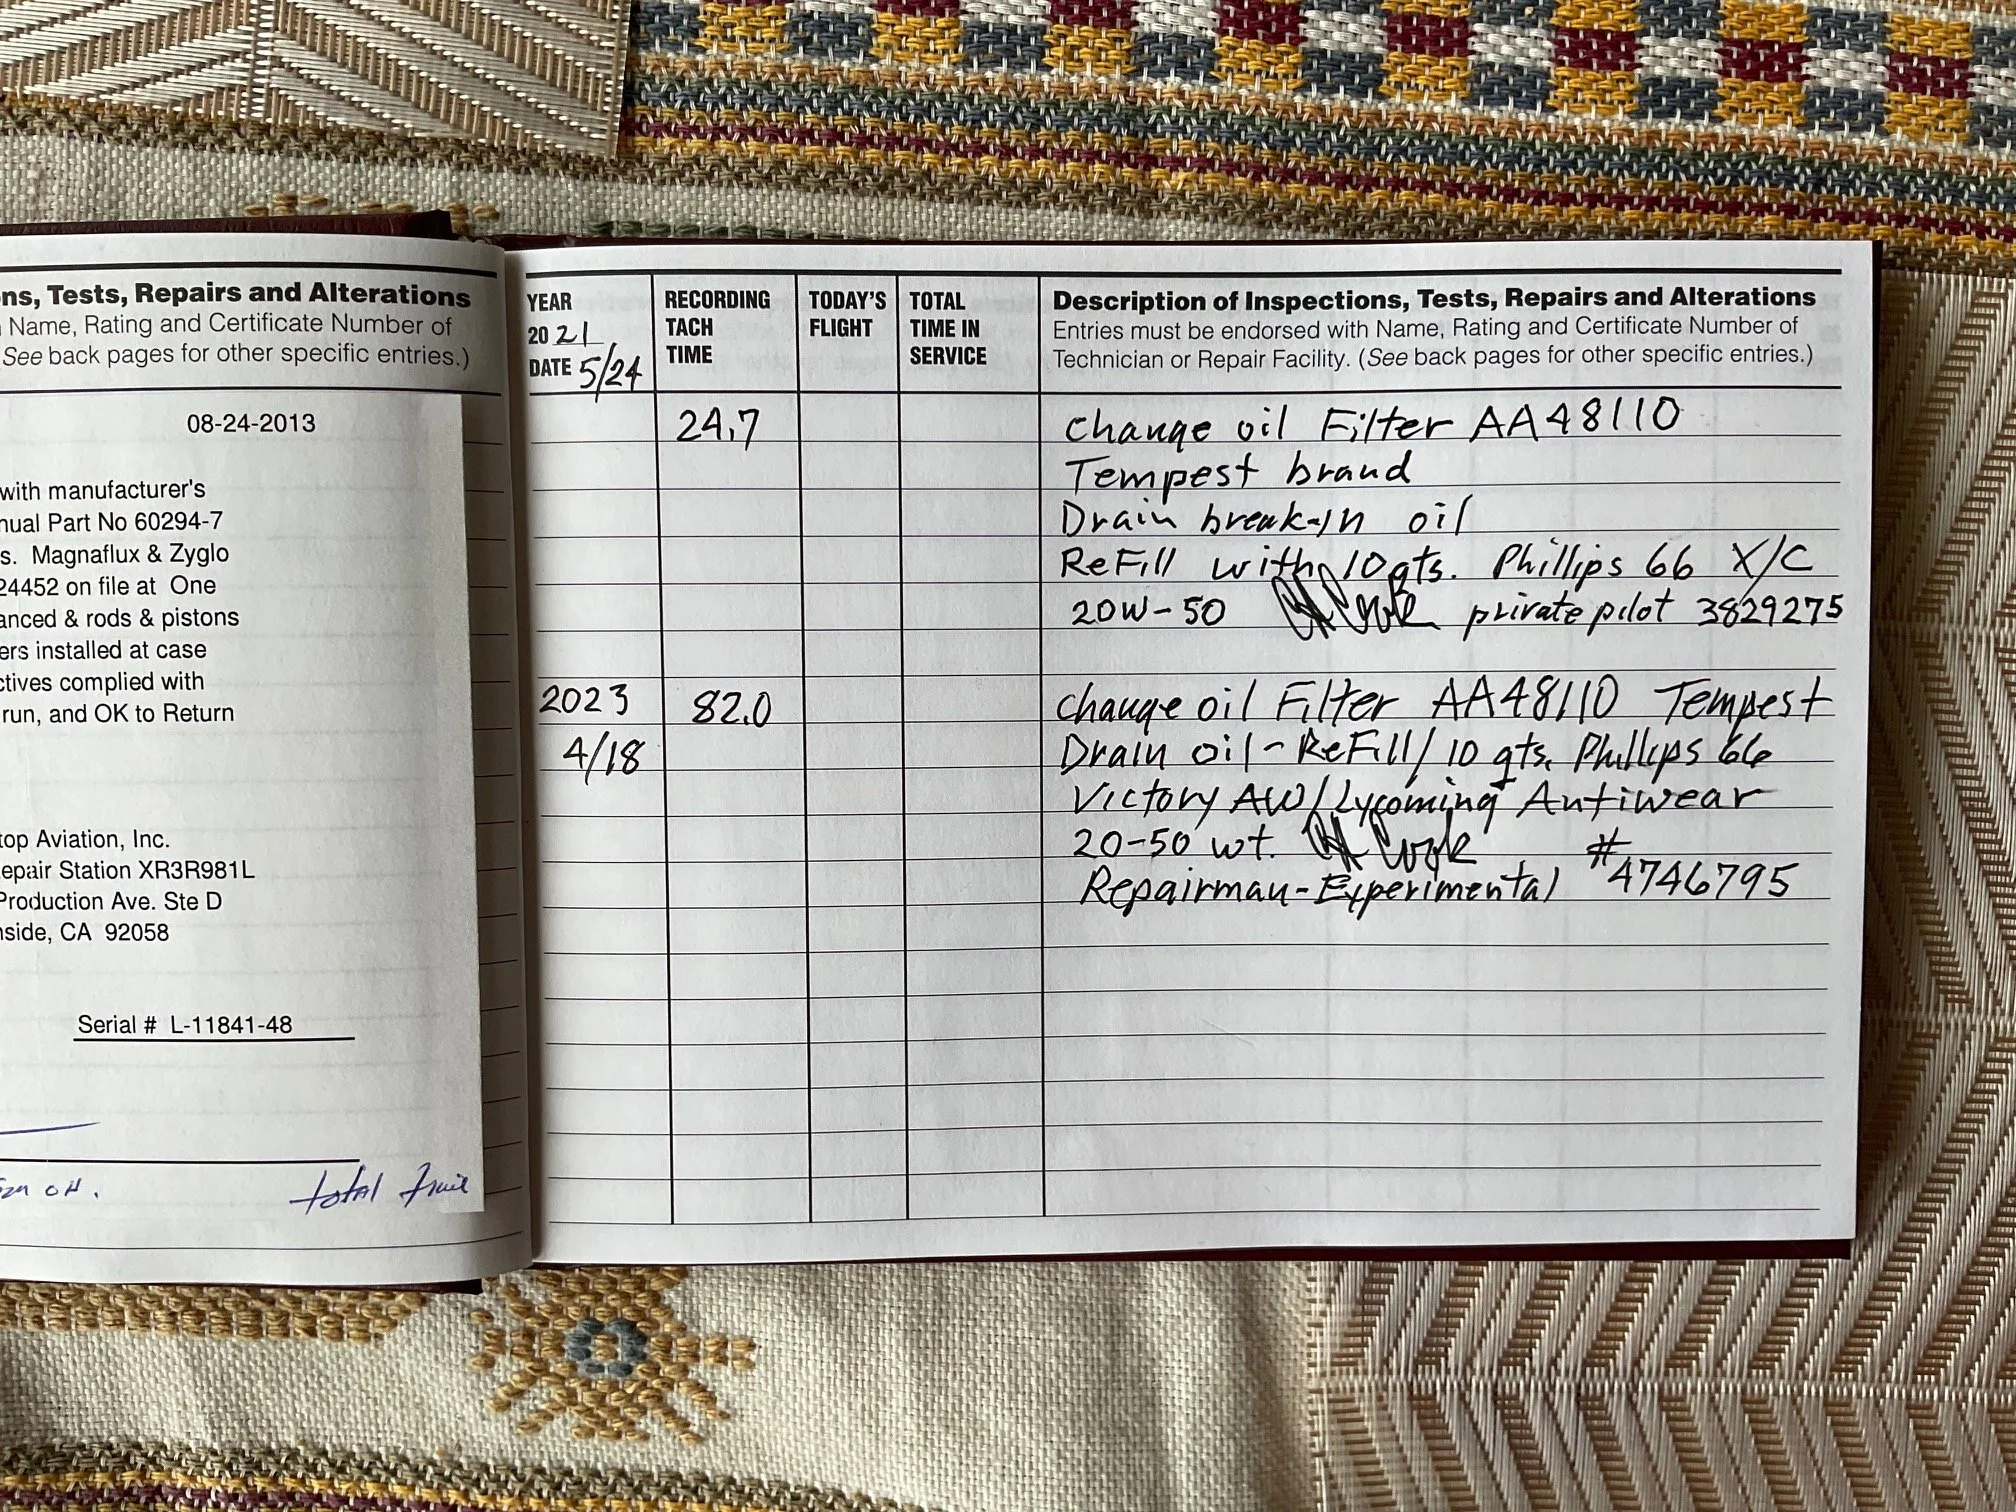 ns, Tests, Repairs and Alterations
Name, Rating and Certificate Number of
See back pages for other specific entries.)
08-24-2013
with manufacturer's
nual Part No 60294-7
s. Magnaflux & Zyglo
24452 on file at One
anced & rods & pistons
ers installed at case
ctives complied with
run, and OK to Return
top Aviation, Inc.
epair Station XR3R981L
Production Ave. Ste D
nside, CA 92058
Serial # L-11841-48
OH.
total time
YEAR
2021
DATE 5/24
RECORDING
TACH
TIME
TODAY'S
FLIGHT
TOTAL
TIME IN
SERVICE
Description of Inspections, Tests, Repairs and Alterations
Entries must be endorsed with Name, Rating and Certificate Number of
Technician or Repair Facility. (See back pages for other specific entries.)
24.7 Change oil Filter AA48110
Tempest brand
Drain break-in oil
ReFill with 10 qts. Phillips 66 X/C
20W-50 Cook private pilot 3829275
2023 82.0 Change oil Filter AA48110 Tempest
4/18 Drain oil - ReFill/10 qts. Phillips 66
Victory AW/Lycoming Antiwear
20-50 wt. Cook #
Repairman-Experimental 4746795